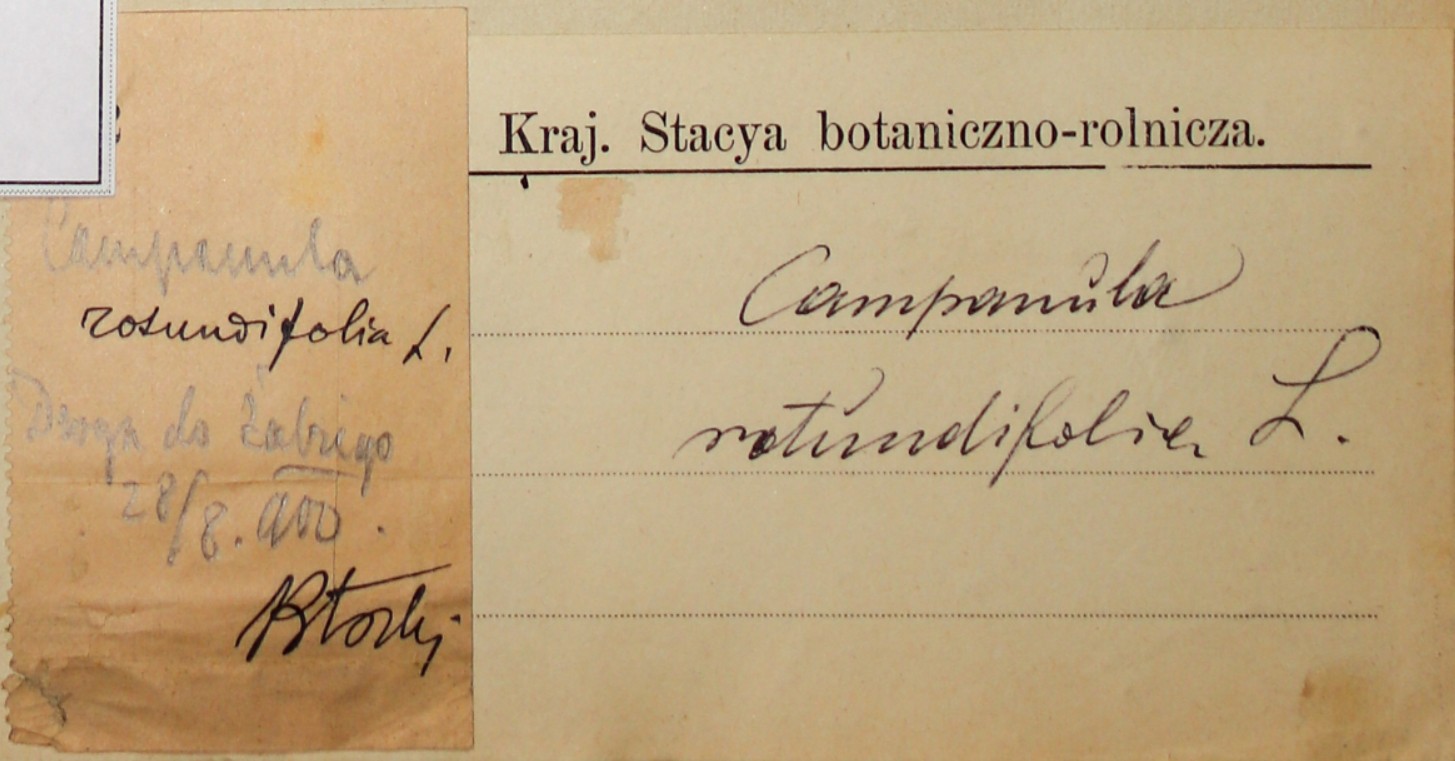 Campanula
rotundifolia L.
Droga do
28/8. 900.
Kraj. Stacya botaniczno-rolnicza.
Campanula
rotundifolia L.